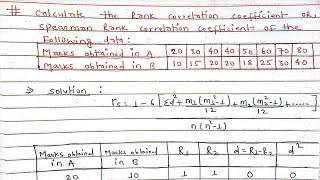 # Calculate the Rank correlation coefficient or,
spearman Rank correlation coefficient of the
following data:
Marks obtained in A 20 30 40 40 50 60 70 80
Marks obtained in B 10 15 20 20 18 25 30 40
⇒ solution :
r = 1 - 6 [Σd² + m₁(m₁²-1)/12 + m₂(m₂²-1)/12 + .....]
n(n²-1)
Marks obtained in A Marks obtained in B R₁ R₂ d=R₁-R₂ d²
20 10 1 1 0 0